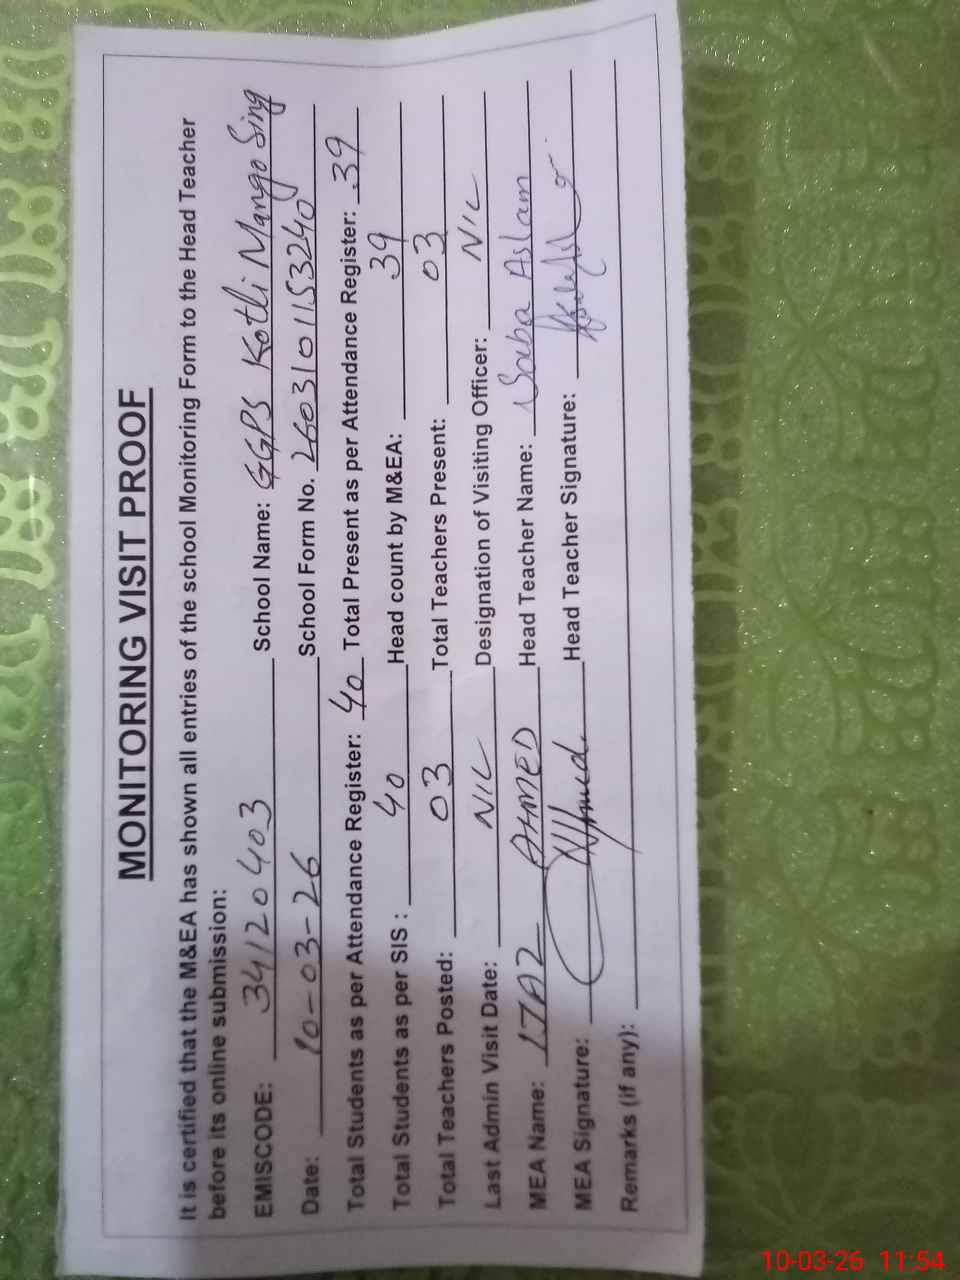 MONITORING VISIT PROOF
It is certified that the M&EA has shown all entries of the school Monitoring Form to the Head Teacher
before its online submission:
EMISCODE: 34120403 School Name: GGPS Kotli Mango Sing
Date: 10-03-26 School Form No. 2603101153240
Total Students as per Attendance Register: 40 Total Present as per Attendance Register: 39
Total Students as per SIS : 40 Head count by M&EA: 39
Total Teachers Posted: 03 Total Teachers Present: 03
Last Admin Visit Date: NIL Designation of Visiting Officer: NIL
MEA Name: IJAZ AHMED Head Teacher Name: Saba Aslam
MEA Signature: Head Teacher Signature:
Remarks (if any):
10-03-26 11:54